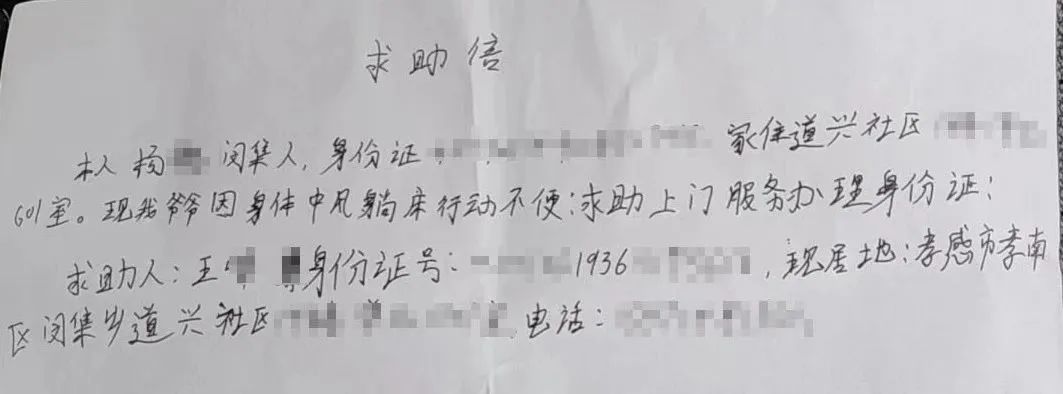 求助信
本人杨 闵集人，身份证 家住道兴社区
601室。现我爷爷因身体中风躺床行动不便：求助上门服务办理身份证：
求助人：王 身份证号： 1936 ，现居地：孝感市孝南
区闵集乡道兴社区 电话：